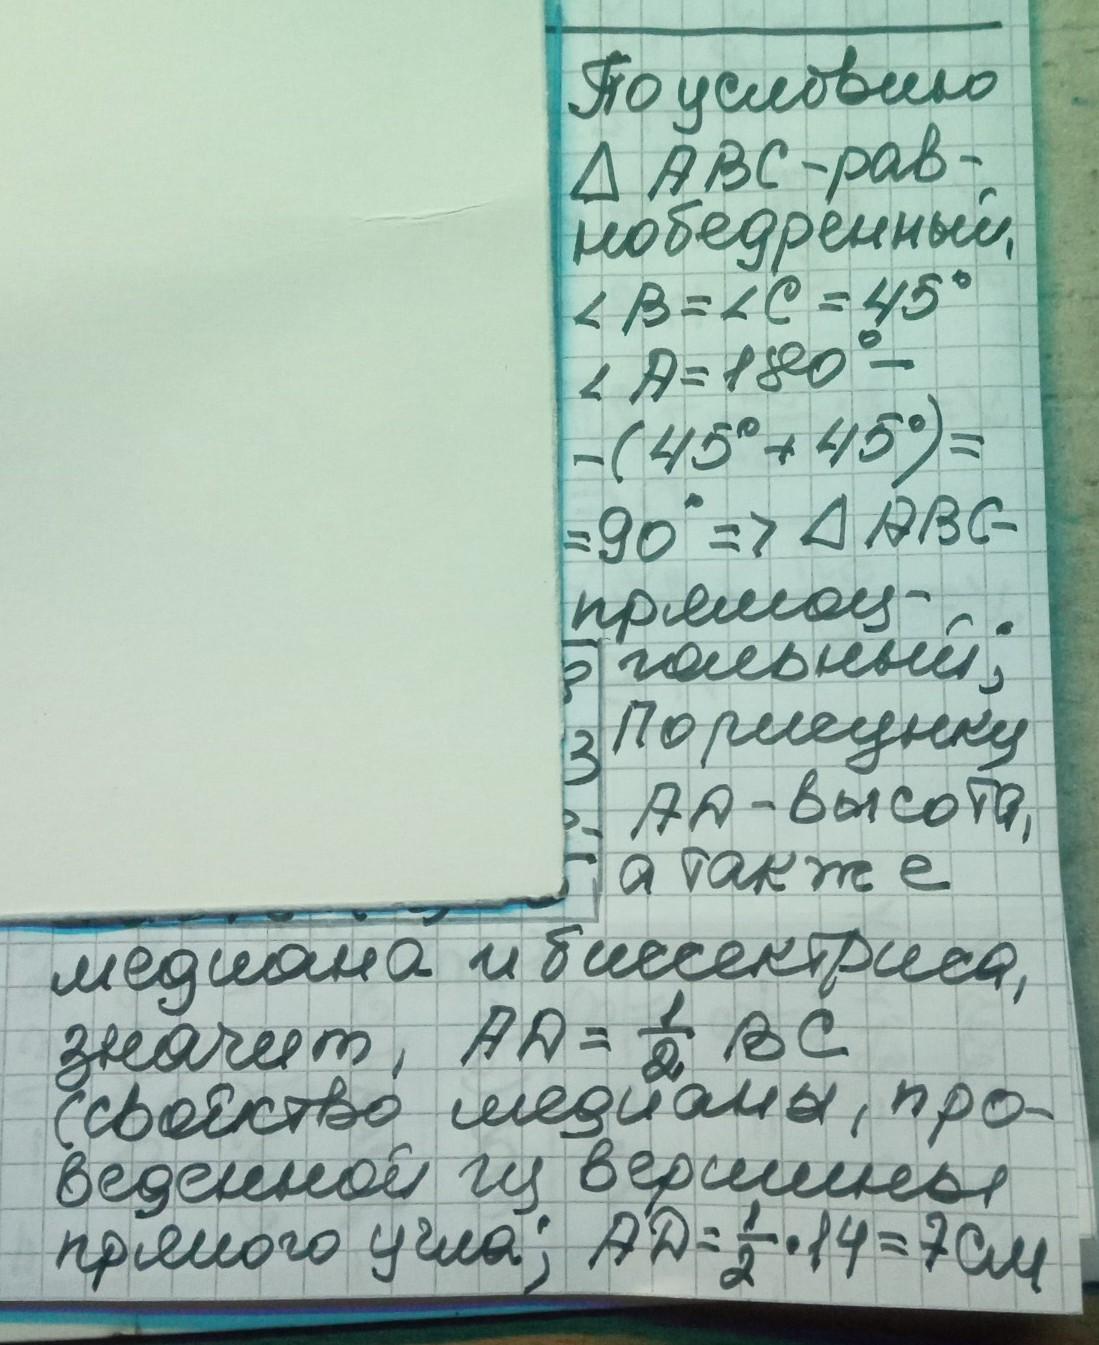 По условию
Δ ABC - рав-
нобедренный,
< B = < C = 45°
< A = 180° -
- (45° + 45°) =
= 90° => Δ ABC -
прямоу-
гольный;
По рисунку
AD - высота,
а также
медиана и биссектриса,
значит, AD = 1/2 BC
(свойство медианы, про-
веденной из вершины
прямого угла; AD = 1/2 · 14 = 7 см